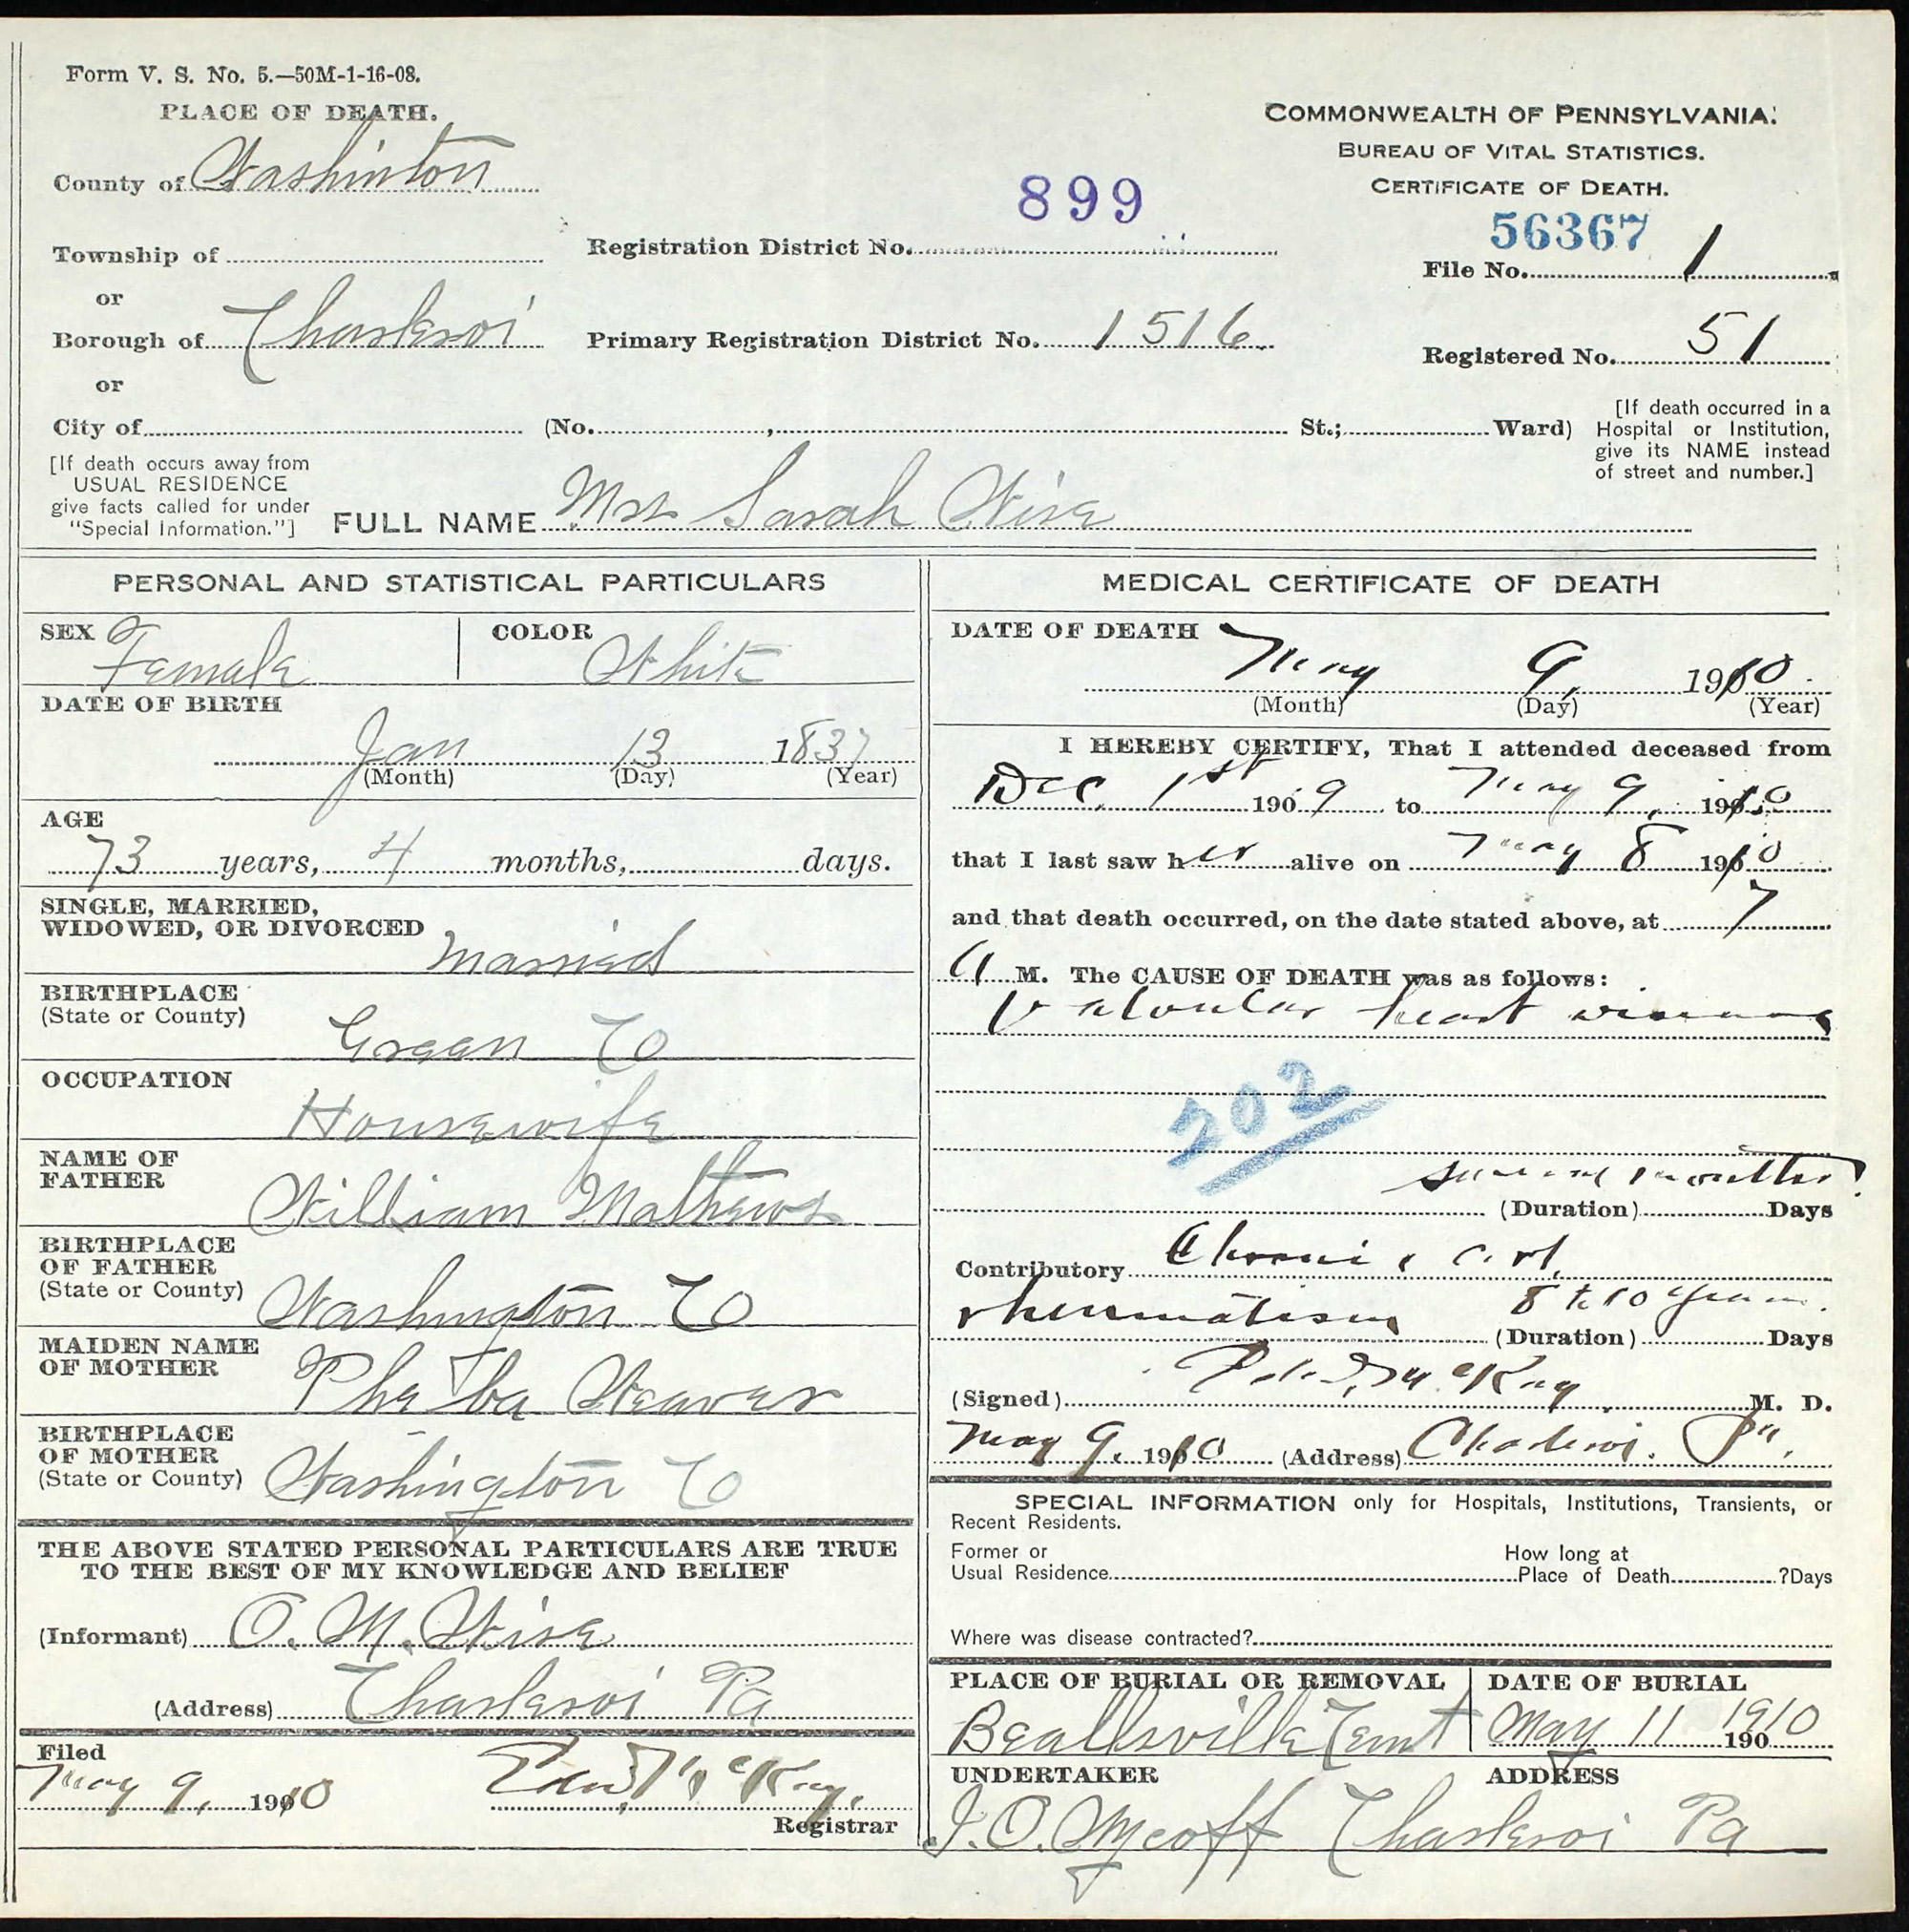 Form V. S. No. 5.—50M-1-16-08.
PLACE OF DEATH.
County of Washinton
Township of
or
Borough of Charleroi
or
City of (No. , St.; Ward)
[If death occurs away from
USUAL RESIDENCE
give facts called for under
"Special Information."]
COMMONWEALTH OF PENNSYLVANIA.
BUREAU OF VITAL STATISTICS.
CERTIFICATE OF DEATH.
899
Registration District No.
56367
File No. 1
Primary Registration District No. 1516
Registered No. 51
[If death occurred in a
Hospital or Institution,
give its NAME instead
of street and number.]
FULL NAME Mrs Sarah Wise
PERSONAL AND STATISTICAL PARTICULARS
SEX Female
COLOR White
DATE OF BIRTH
Jan 13 1837
(Month) (Day) (Year)
AGE
73 years, 4 months, days.
SINGLE, MARRIED,
WIDOWED, OR DIVORCED
Married
BIRTHPLACE
(State or County)
Green Co
OCCUPATION
Housewife
NAME OF
FATHER
William Mathews
BIRTHPLACE
OF FATHER
(State or County)
Washington Co
MAIDEN NAME
OF MOTHER
Pheba Weaver
BIRTHPLACE
OF MOTHER
(State or County)
Washington Co
THE ABOVE STATED PERSONAL PARTICULARS ARE TRUE
TO THE BEST OF MY KNOWLEDGE AND BELIEF
(Informant) O. M. Wise
(Address) Charleroi Pa
Filed
May 9, 1910
McKay.
Registrar
MEDICAL CERTIFICATE OF DEATH
DATE OF DEATH
May 9, 1910
(Month) (Day) (Year)
I HEREBY CERTIFY, That I attended deceased from
Dec. 1st 1909 to May 9, 1910
that I last saw her alive on May 8 1910
and that death occurred, on the date stated above, at 7
A M. The CAUSE OF DEATH was as follows:
Valvular heart disease
202
several months
(Duration) Days
Contributory Chronic art.
rheumatism 8 to 10 years.
(Duration) Days
(Signed) McKay M. D.
May 9, 1910 (Address) Charleroi. Pa.
SPECIAL INFORMATION only for Hospitals, Institutions, Transients, or
Recent Residents.
Former or
Usual Residence
How long at
Place of Death ?Days
Where was disease contracted?
PLACE OF BURIAL OR REMOVAL
Beallsville Cemt
DATE OF BURIAL
May 11 1910
190
UNDERTAKER
ADDRESS
J. O. Mycoff Charleroi Pa